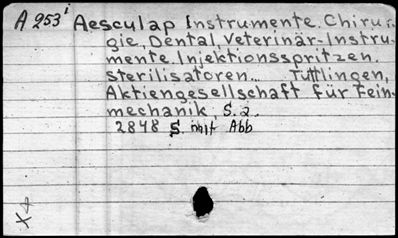 A 253i Aesculap Instrumente. Chirur-
gie, Dental, Veterinär-Instru-
mente. Injektionsspritzen.
sterilisatoren... Tuttlingen,
Aktiengesellschaft für Fein-
mechanik S.a.
2848 S. mit Abb
X4